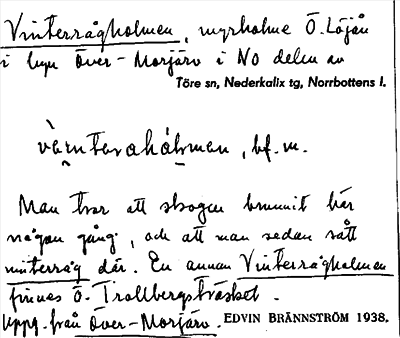 Vinterrågholmen, myrholme Ö. Löjån
i byn Över-Morjärv i NO delen av
Töre sn, Nederkalix tg, Norrbottens l.
vèntərahólmen, bf. m.
Man tror att skogen brunnit här
någon gång, och att man sedan sått
vinterråg där. En annan Vinterrågholmen
finnes Ö. Trollbergsträsket.
Uppg. från Över-Morjärv. EDVIN BRÄNNSTRÖM 1938.